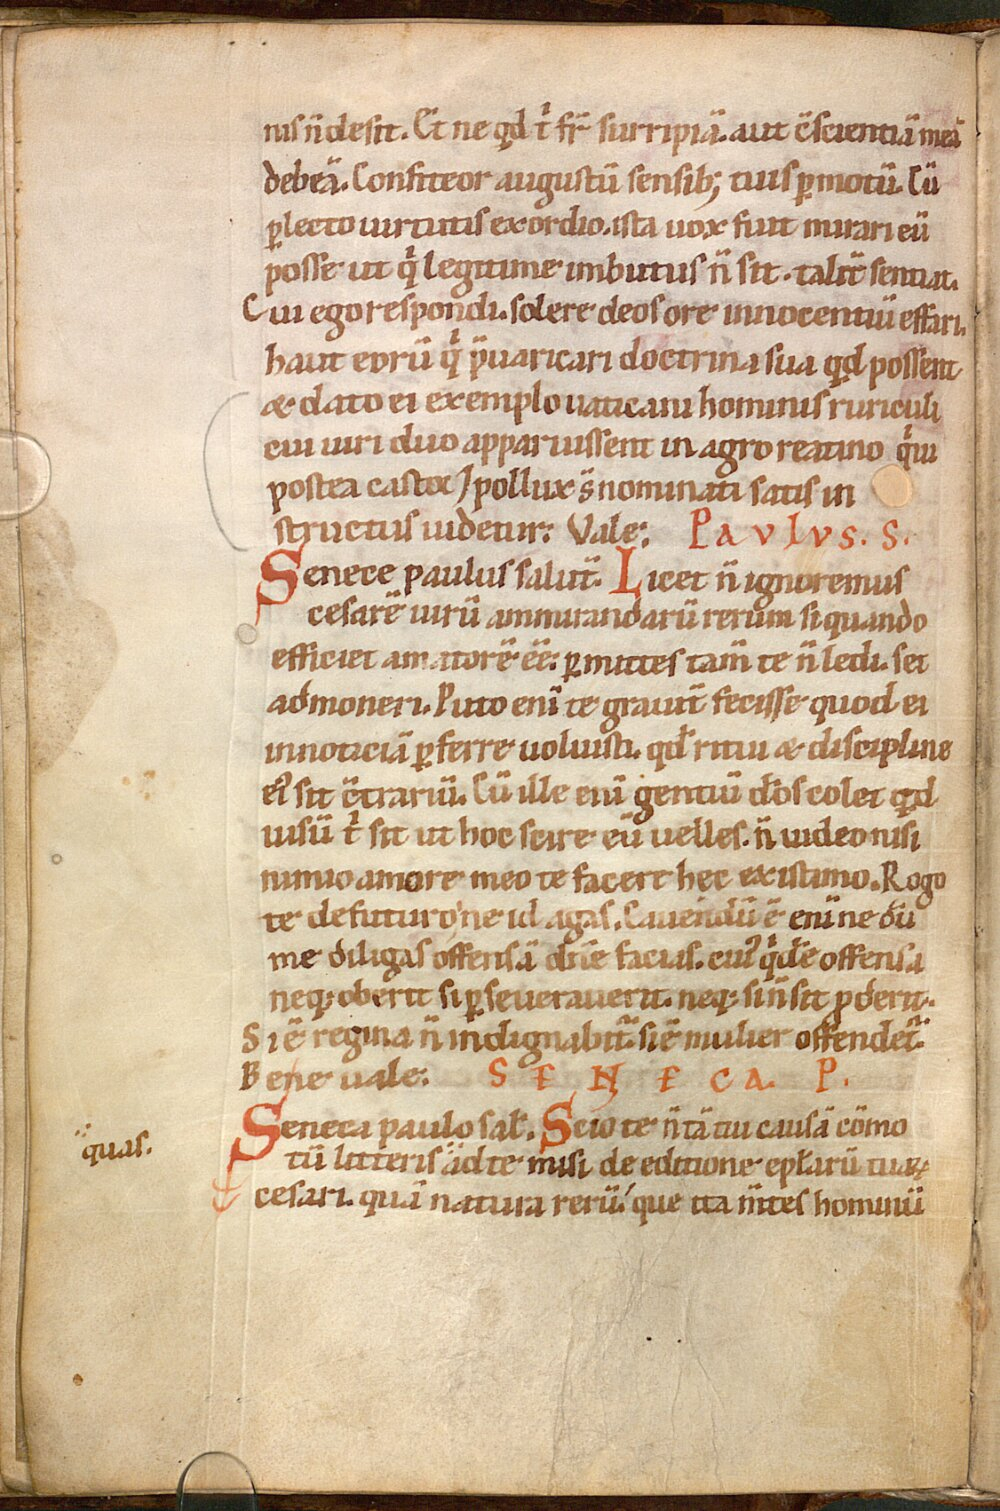 nis n̄ desit. Et ne qd t᷑ fr̄ surripiā. aut c̄scientiā meā
debeā. Confiteor augustū sensib; tuis ꝑmotū. Cū
ꝑlecto uirtutis exordio. ista uox fuit mirari eū
posse ut qͥ legitime imbutus n̄ sit. talit̄ sentiat.
Cui ego respondi. solere deos ore innocentiū effari.
haut eorū qͥ p̄uaricari doctrina sua qd possent
& dato ei exemplo uaticani hominis ruriculi
cui uiri duo apparuissent in agro reatino qͥui
postea castor ⁊ pollux s̄ nominati satis in
structus uidetur: Vale: PAVLVS. S.
Senece paulus salut̄. Licet n̄ ignoremus
cesarē uirū ammirandarū rerum si quando
efficiet amatorē eē: ꝑmittes tam̄ te n̄ ledi. set
admoneri. Puto eni̅ te grauit̄ fecisse quod ei
in noticiā ꝑferre uoluisti. qd̄ ritui & discipline
ei᷒ sit c̄trariū. Cū ille eni̅ gentiū d̄os colet qd
uisū t᷑ sit ut hoc scire eū uelles. n̄ uideo nisi
nimio amore meo te facere hec existimo. Rogo
te de futuro ne id agas. Cauendū ē eni̅ ne dū
me diligas offensā dn̄e facias. cui᷒ qͥdē offensa
neq; oberit si ꝑseuerauerit. neq; si n̄ sit ꝓderit.
Si ē regina n̄ indignabit᷑. si ē mulier offendet᷑.
Bene uale: SENECA. P.
Seneca paulo sal̄. Scio te n̄ tā tui causā cōmo
quas.
tū litteris ad te misi de editione ep̄larū tuaꝝ
cesari. quā natura rerū. que ita m̄tes hominū